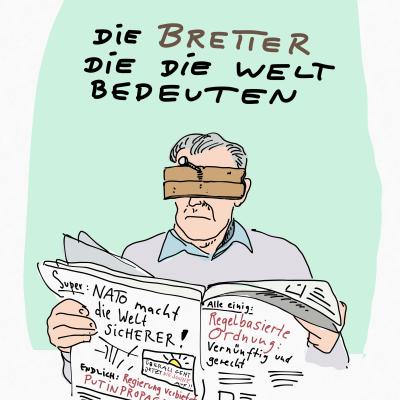 DIE BRETTER
DIE DIE WELT
BEDEUTEN
Super: NATO macht
die Welt
SICHERER!
ÜBERALL GEHT
JETZT DIE SONNE
AUF!
ENDLICH: Regierung verbietet
PUTINPROPAGANDA
Alle einig:
Regelbasierte
Ordnung:
Vernünftig und
gerecht